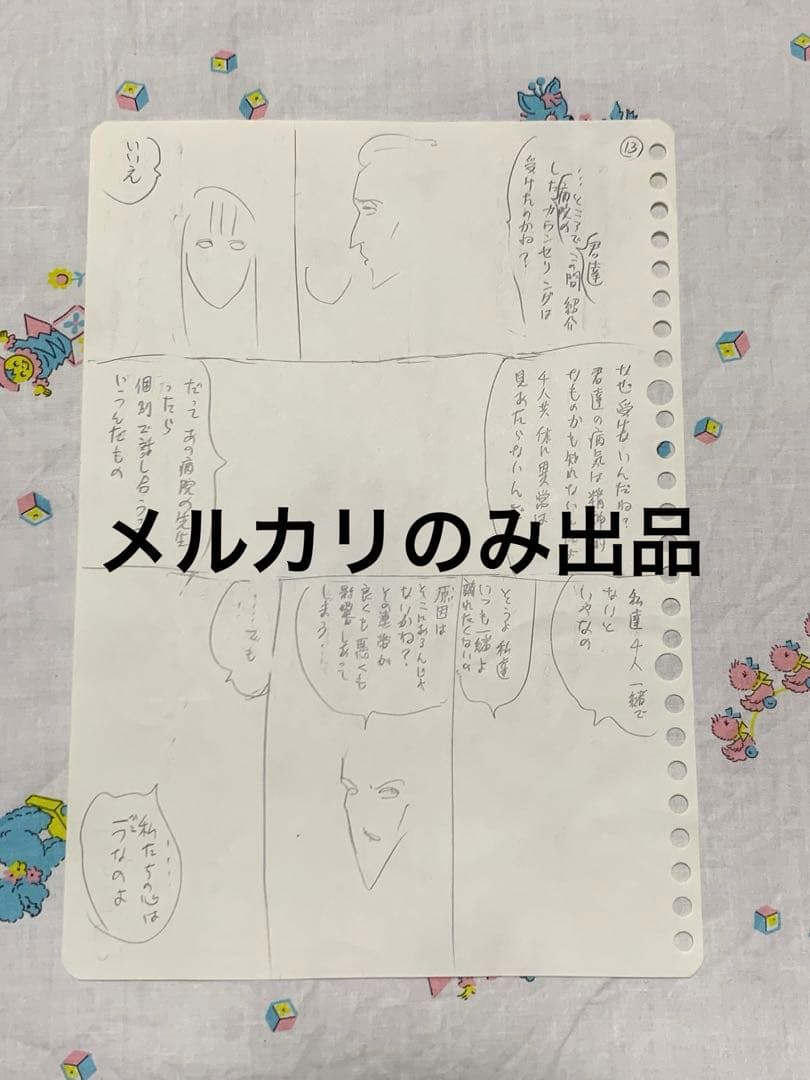 ⑬
君達
…ところでこの間 紹介
した病院の
カウンセリングは
受けたのかね？
いいえ
なぜ 受けないんだね？
君達の病気は精神的
なものかも知れない
4人共 体に異常は
見あたらないんだ
だって あの病院の先生
ったら
個別で話し合う
っていうんだもの
私達 4人 一緒で
ないと
いやなの
そうよ 私達
いつも一緒よ
離れたくないの
原因は
そこにあるんじゃ
ないかね？
その連帯が
良くも悪くも
影響しあって
しまう…
……でも
……
私たちの心は
なのよ
メルカリのみ出品